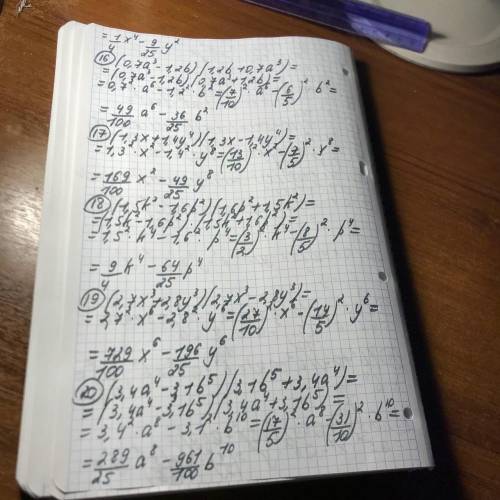 = 1/4 x⁴ - 9/25 y²
⑯ (0,7a³ - 1,2b)(1,2b + 0,7a³) =
= (0,7a³ - 1,2b)(0,7a³ + 1,2b) =
= 0,7² · a⁶ - 1,2² · b² = (7/10)² · a⁶ - (6/5)² · b² =
= 49/100 a⁶ - 36/25 b²
⑰ (1,3x + 1,4y⁴)(1,3x - 1,4y⁴) =
= 1,3² · x² - 1,4² · y⁸ = (13/10)² · x² - (7/5)² · y⁸ =
= 169/100 x² - 49/25 y⁸
⑱ (1,5k² - 1,6p²)(1,6p² + 1,5k²) =
= (1,5k² - 1,6p²)(1,5k² + 1,6p²) =
= 1,5² · k⁴ - 1,6² · p⁴ = (3/2)² · k⁴ - (8/5)² · p⁴ =
= 9/4 k⁴ - 64/25 p⁴
⑲ (2,7x³ + 2,8y³)(2,7x³ - 2,8y³) =
= 2,7² · x⁶ - 2,8² · y⁶ = (27/10)² · x⁶ - (14/5)² · y⁶ =
= 729/100 x⁶ - 196/25 y⁶
⑳ (3,4a⁴ - 3,1b⁵)(3,1b⁵ + 3,4a⁴) =
= (3,4a⁴ - 3,1b⁵)(3,4a⁴ + 3,1b⁵) =
= 3,4² · a⁸ - 3,1² · b¹⁰ = (17/5)² · a⁸ - (31/10)² · b¹⁰ =
= 289/25 a⁸ - 961/100 b¹⁰